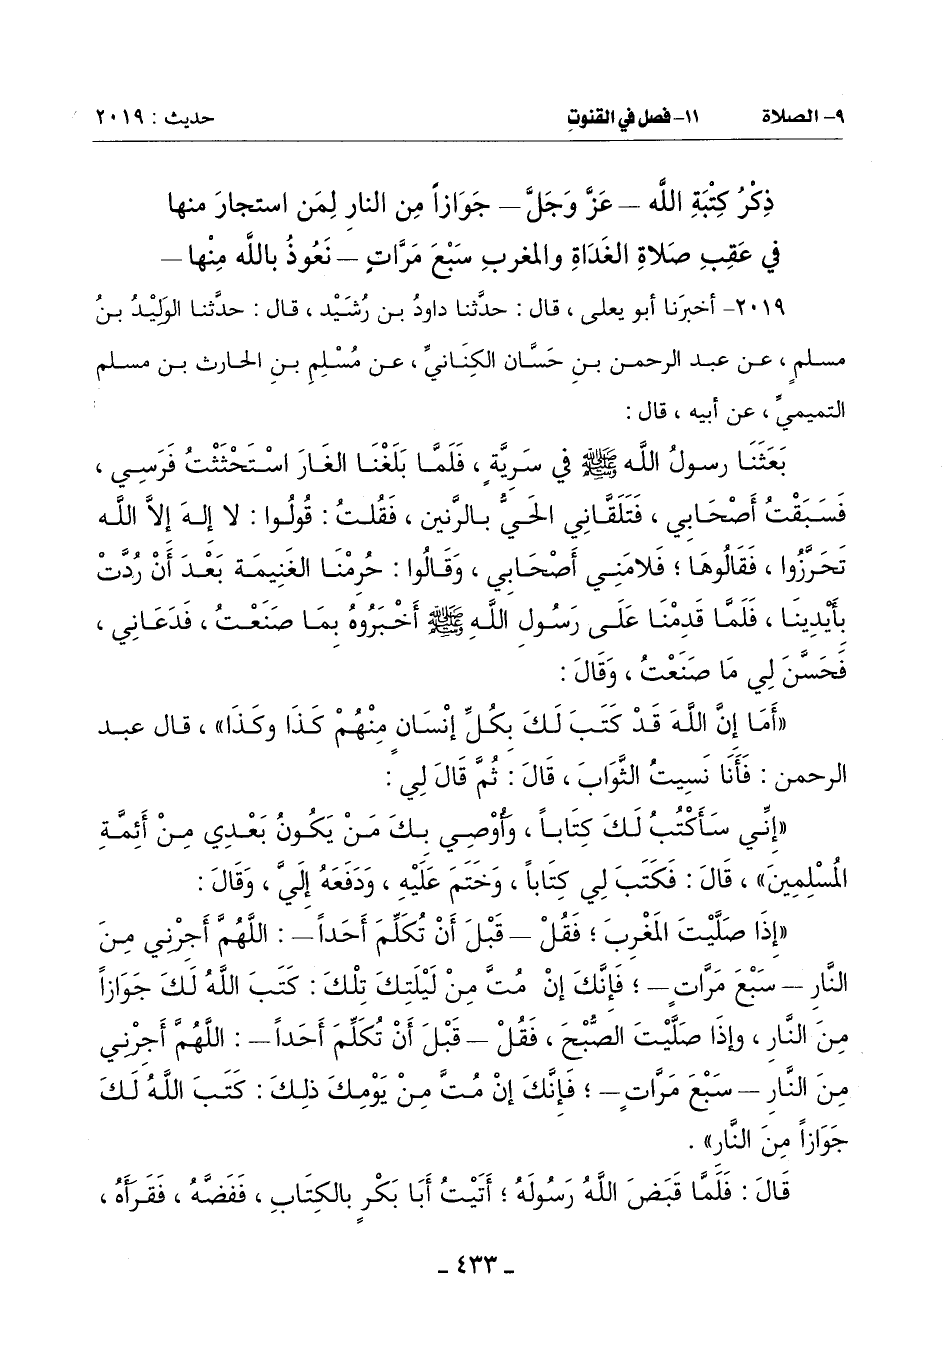 ٩- الصلاة ١١- فصل في القنوتِ حديث : ٢٠١٩
ذِكْرُ كِتْبَةِ اللَّه – عَزَّ وَجَلَّ – جَوَازاً مِن النار لِمَن استجارَ منها
في عَقِبِ صَلاةِ الغَدَاةِ والمغربِ سَبْعَ مَرَّاتٍ – نَعُوذُ باللَّه مِنْها –
٢٠١٩- أخبرَنا أبو يعلى ، قال : حدَّثنا داودُ بن رُشَيْد ، قال : حدَّثنا الوَلِيْدُ بنُ
مسلمٍ ، عن عبد الرحمن بنِ حَسَّان الكِنَانيِّ ، عن مُسْلِمِ بنِ الحارث بن مسلم
التميميِّ ، عن أبيه ، قال :
بَعَثَنَا رسولُ اللَّه ﷺ في سَرِيَّةٍ ، فَلَمَّا بَلَغْنَا الغَارَ اسْتَحْثَثْتُ فَرَسِي ،
فَسَبَقْتُ أَصْحَابي ، فَتَلَقَّاني الحَيُّ بالرَّنين ، فَقُلتُ : قُولُوا : لا إلهَ إلاَّ اللَّه
تَحَرَّزُوا ، فَقَالُوهَا ؛ فَلامَنِي أَصْحَابِي ، وَقَالُوا : حُرِمْنَا الغَنِيمَةَ بَعْدَ أَنْ رُدَّتْ
بِأَيْدِينَا ، فَلَمَّا قَدِمْنَا عَلَى رَسُولِ اللَّهِ ﷺ أَخْبَرُوهُ بِمَا صَنَعْتُ ، فَدَعَانِي ،
فَحَسَّنَ لِي مَا صَنَعْتُ ، وَقَالَ :
«أَمَا إنَّ اللَّهَ قَدْ كَتَبَ لَكَ بِكُلِّ إنْسَانٍ مِنْهُمْ كَذَا وكَذَا» ، قال عبد
الرحمن : فَأَنَا نَسِيتُ الثَّوَابَ ، قَالَ : ثُمَّ قَالَ لِي :
«إنِّي سَأَكْتُبُ لَكَ كِتَاباً ، وَأُوْصِي بِكَ مَنْ يَكُونُ بَعْدِي مِنْ أَئِمَّةِ
المُسْلِمِينَ» ، قَالَ : فَكَتَبَ لِي كِتَاباً ، وَخَتَمَ عَلَيْهِ ، وَدَفَعَهُ إلَيَّ ، وَقَالَ :
«إذَا صَلَّيْتَ المَغْرِبَ ؛ فَقُلْ – قَبْلَ أَنْ تُكَلِّمَ أَحَداً – : اللَّهُمَّ أَجِرْنِي مِنَ
النَّارِ – سَبْعَ مَرَّاتٍ – ؛ فَإِنَّكَ إنْ مُتَّ مِنْ لَيْلَتِكَ تِلْكَ : كَتَبَ اللَّهُ لَكَ جَوَازاً
مِنَ النَّارِ ، وإذَا صَلَّيْتَ الصُّبْحَ ، فَقُلْ – قَبْلَ أَنْ تُكَلِّمَ أَحَداً – : اللَّهُمَّ أَجِرْنِي
مِنَ النَّارِ – سَبْعَ مَرَّاتٍ – ؛ فَإِنَّكَ إنْ مُتَّ مِنْ يَوْمِكَ ذلِكَ : كَتَبَ اللَّهُ لَكَ
جَوَازاً مِنَ النَّارِ» .
قَالَ : فَلَمَّا قَبَضَ اللَّهُ رَسُولَهُ ؛ أَتَيْتُ أَبَا بَكْرٍ بالكِتَابِ ، فَفَضَّهُ ، فَقَرَأَهُ ،
- ٤٣٣ -